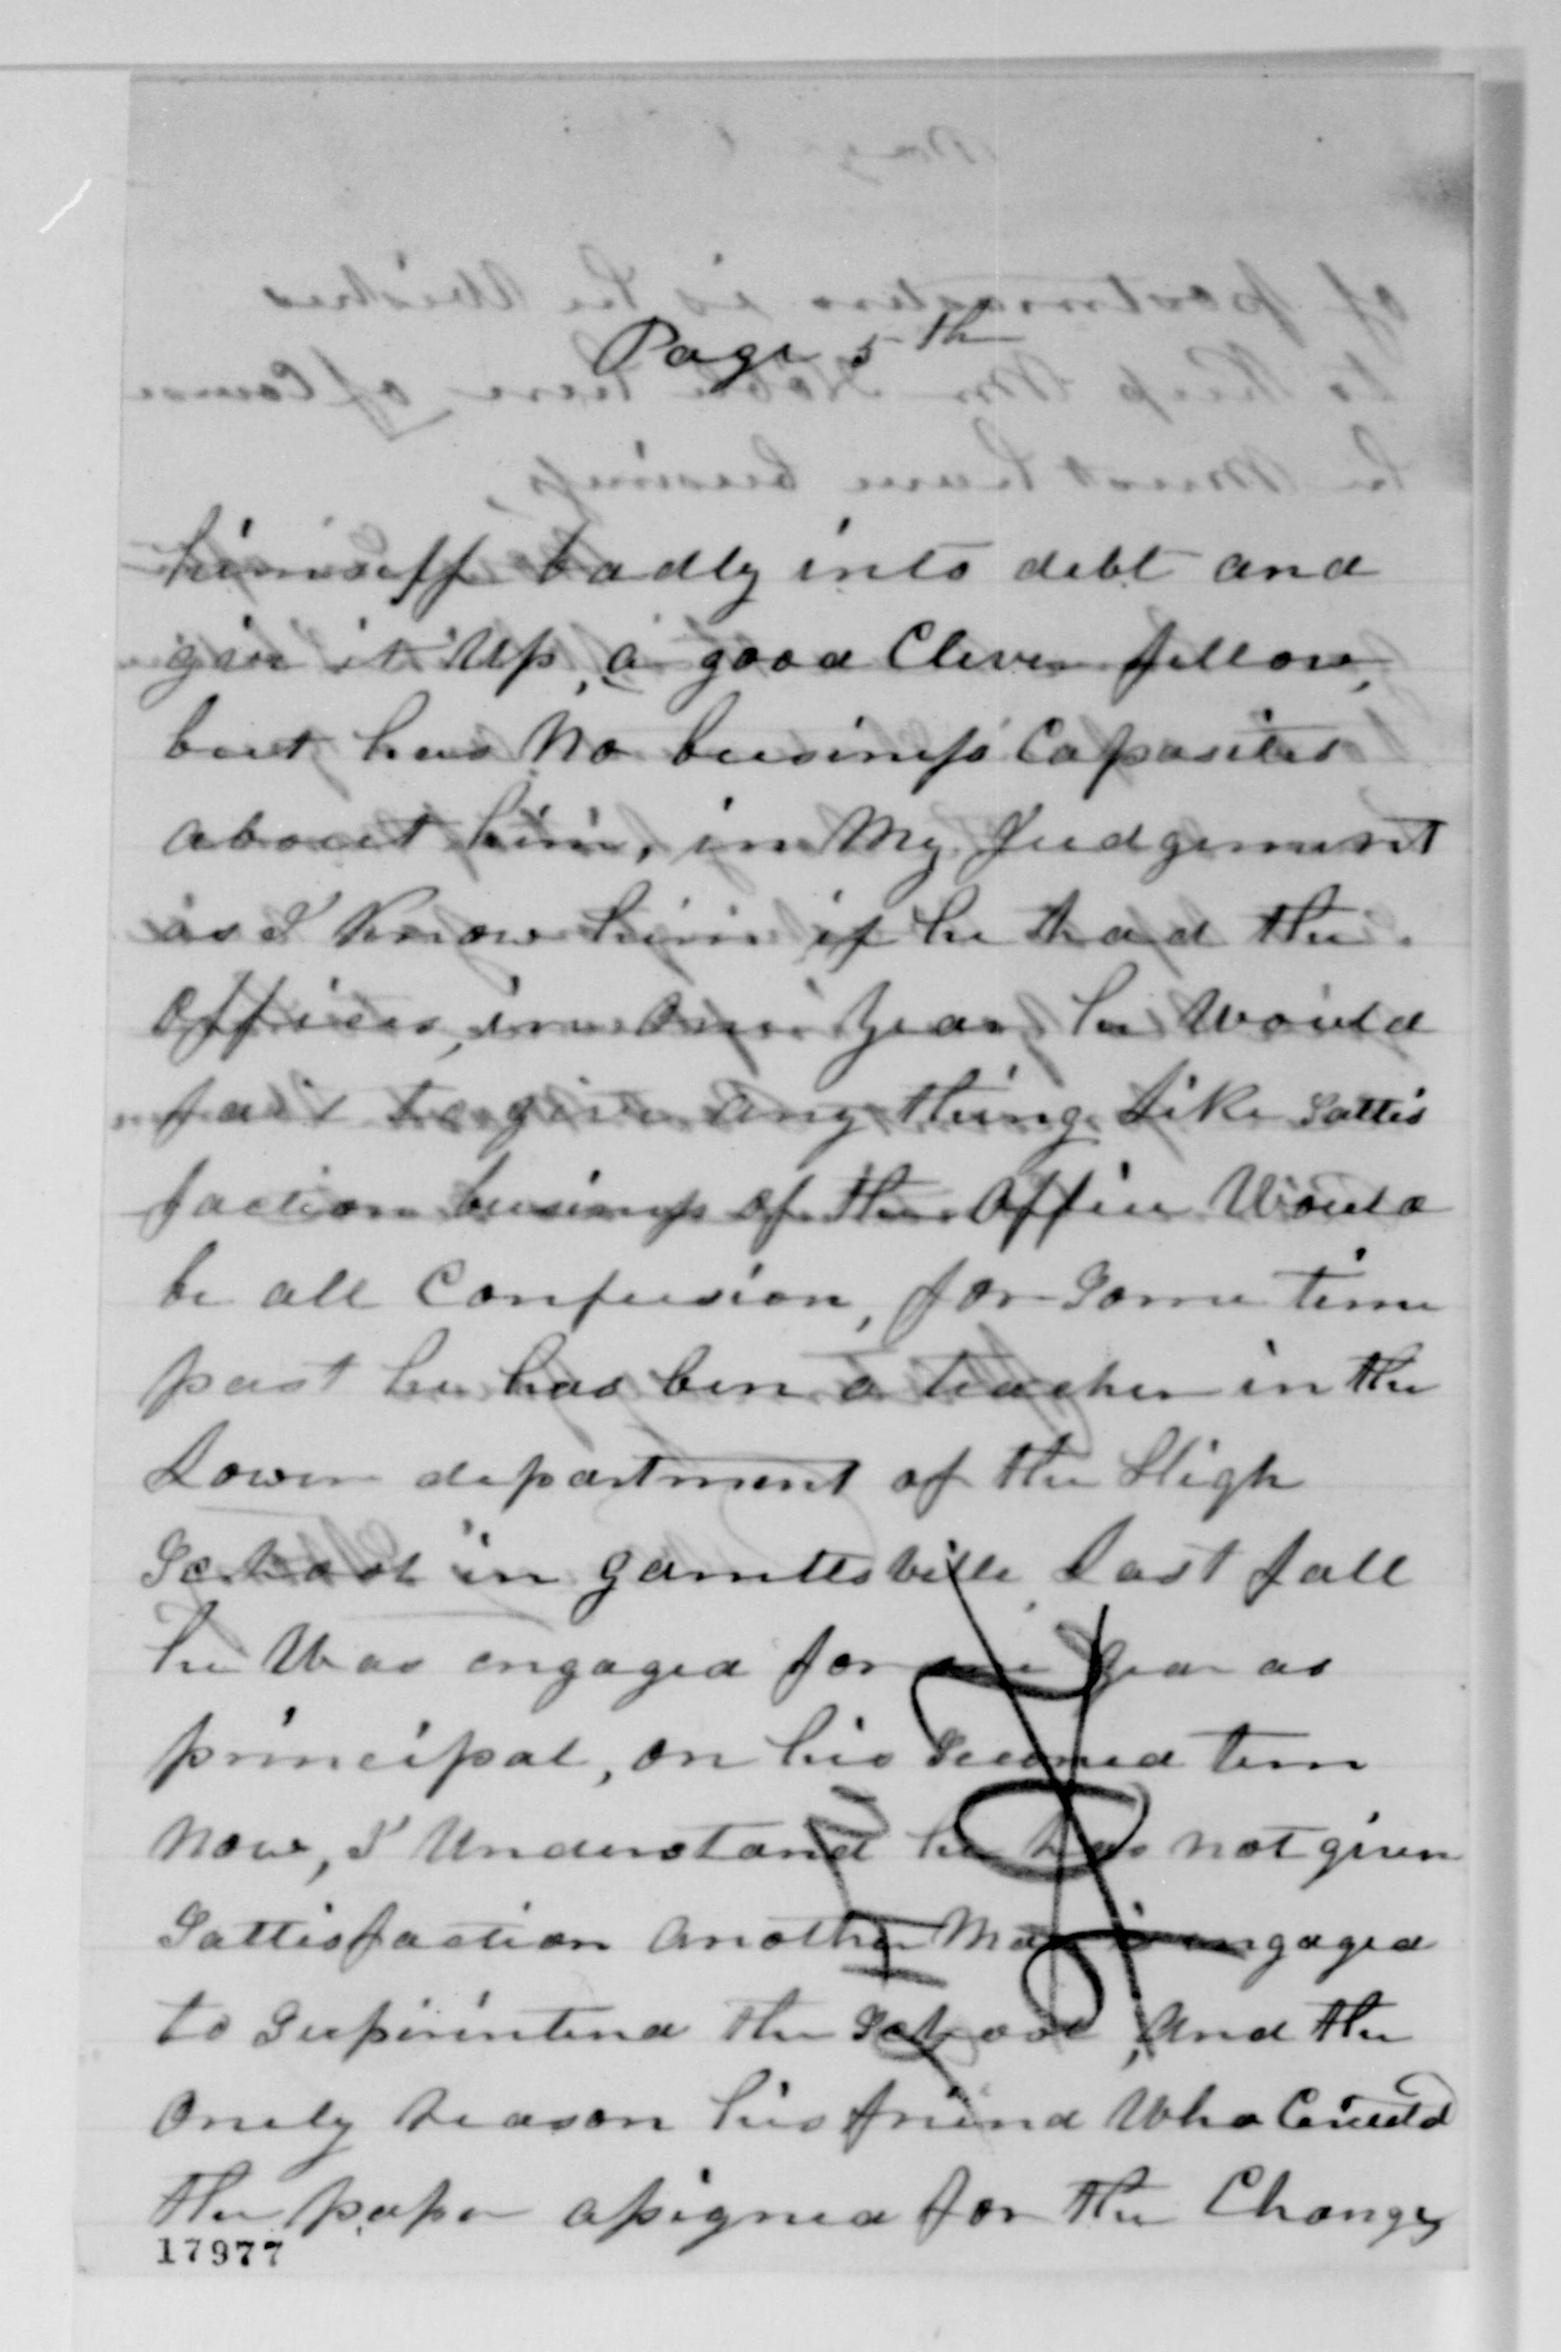 Page 5th
himself badly into debt and
give it Up, a good Clever fellow,
but has No business Capasites
about him, in My Judgement
as I Know him if he had the
Office, in One Year he Would
fail to give any thing Like Sattis
faction business of the Office Would
be all Confusion, for Some time
past he has ben a teacher in the
Lower department of the High
School in garrettsville, Last fall
he Was engaged for one year as
principal, on his Second term
Now, I Understand he has not given
Sattisfaction another Man is engaged
to Superintend the School, and the
Onely Reason his friend Who
the paper assigned for the Change
17977